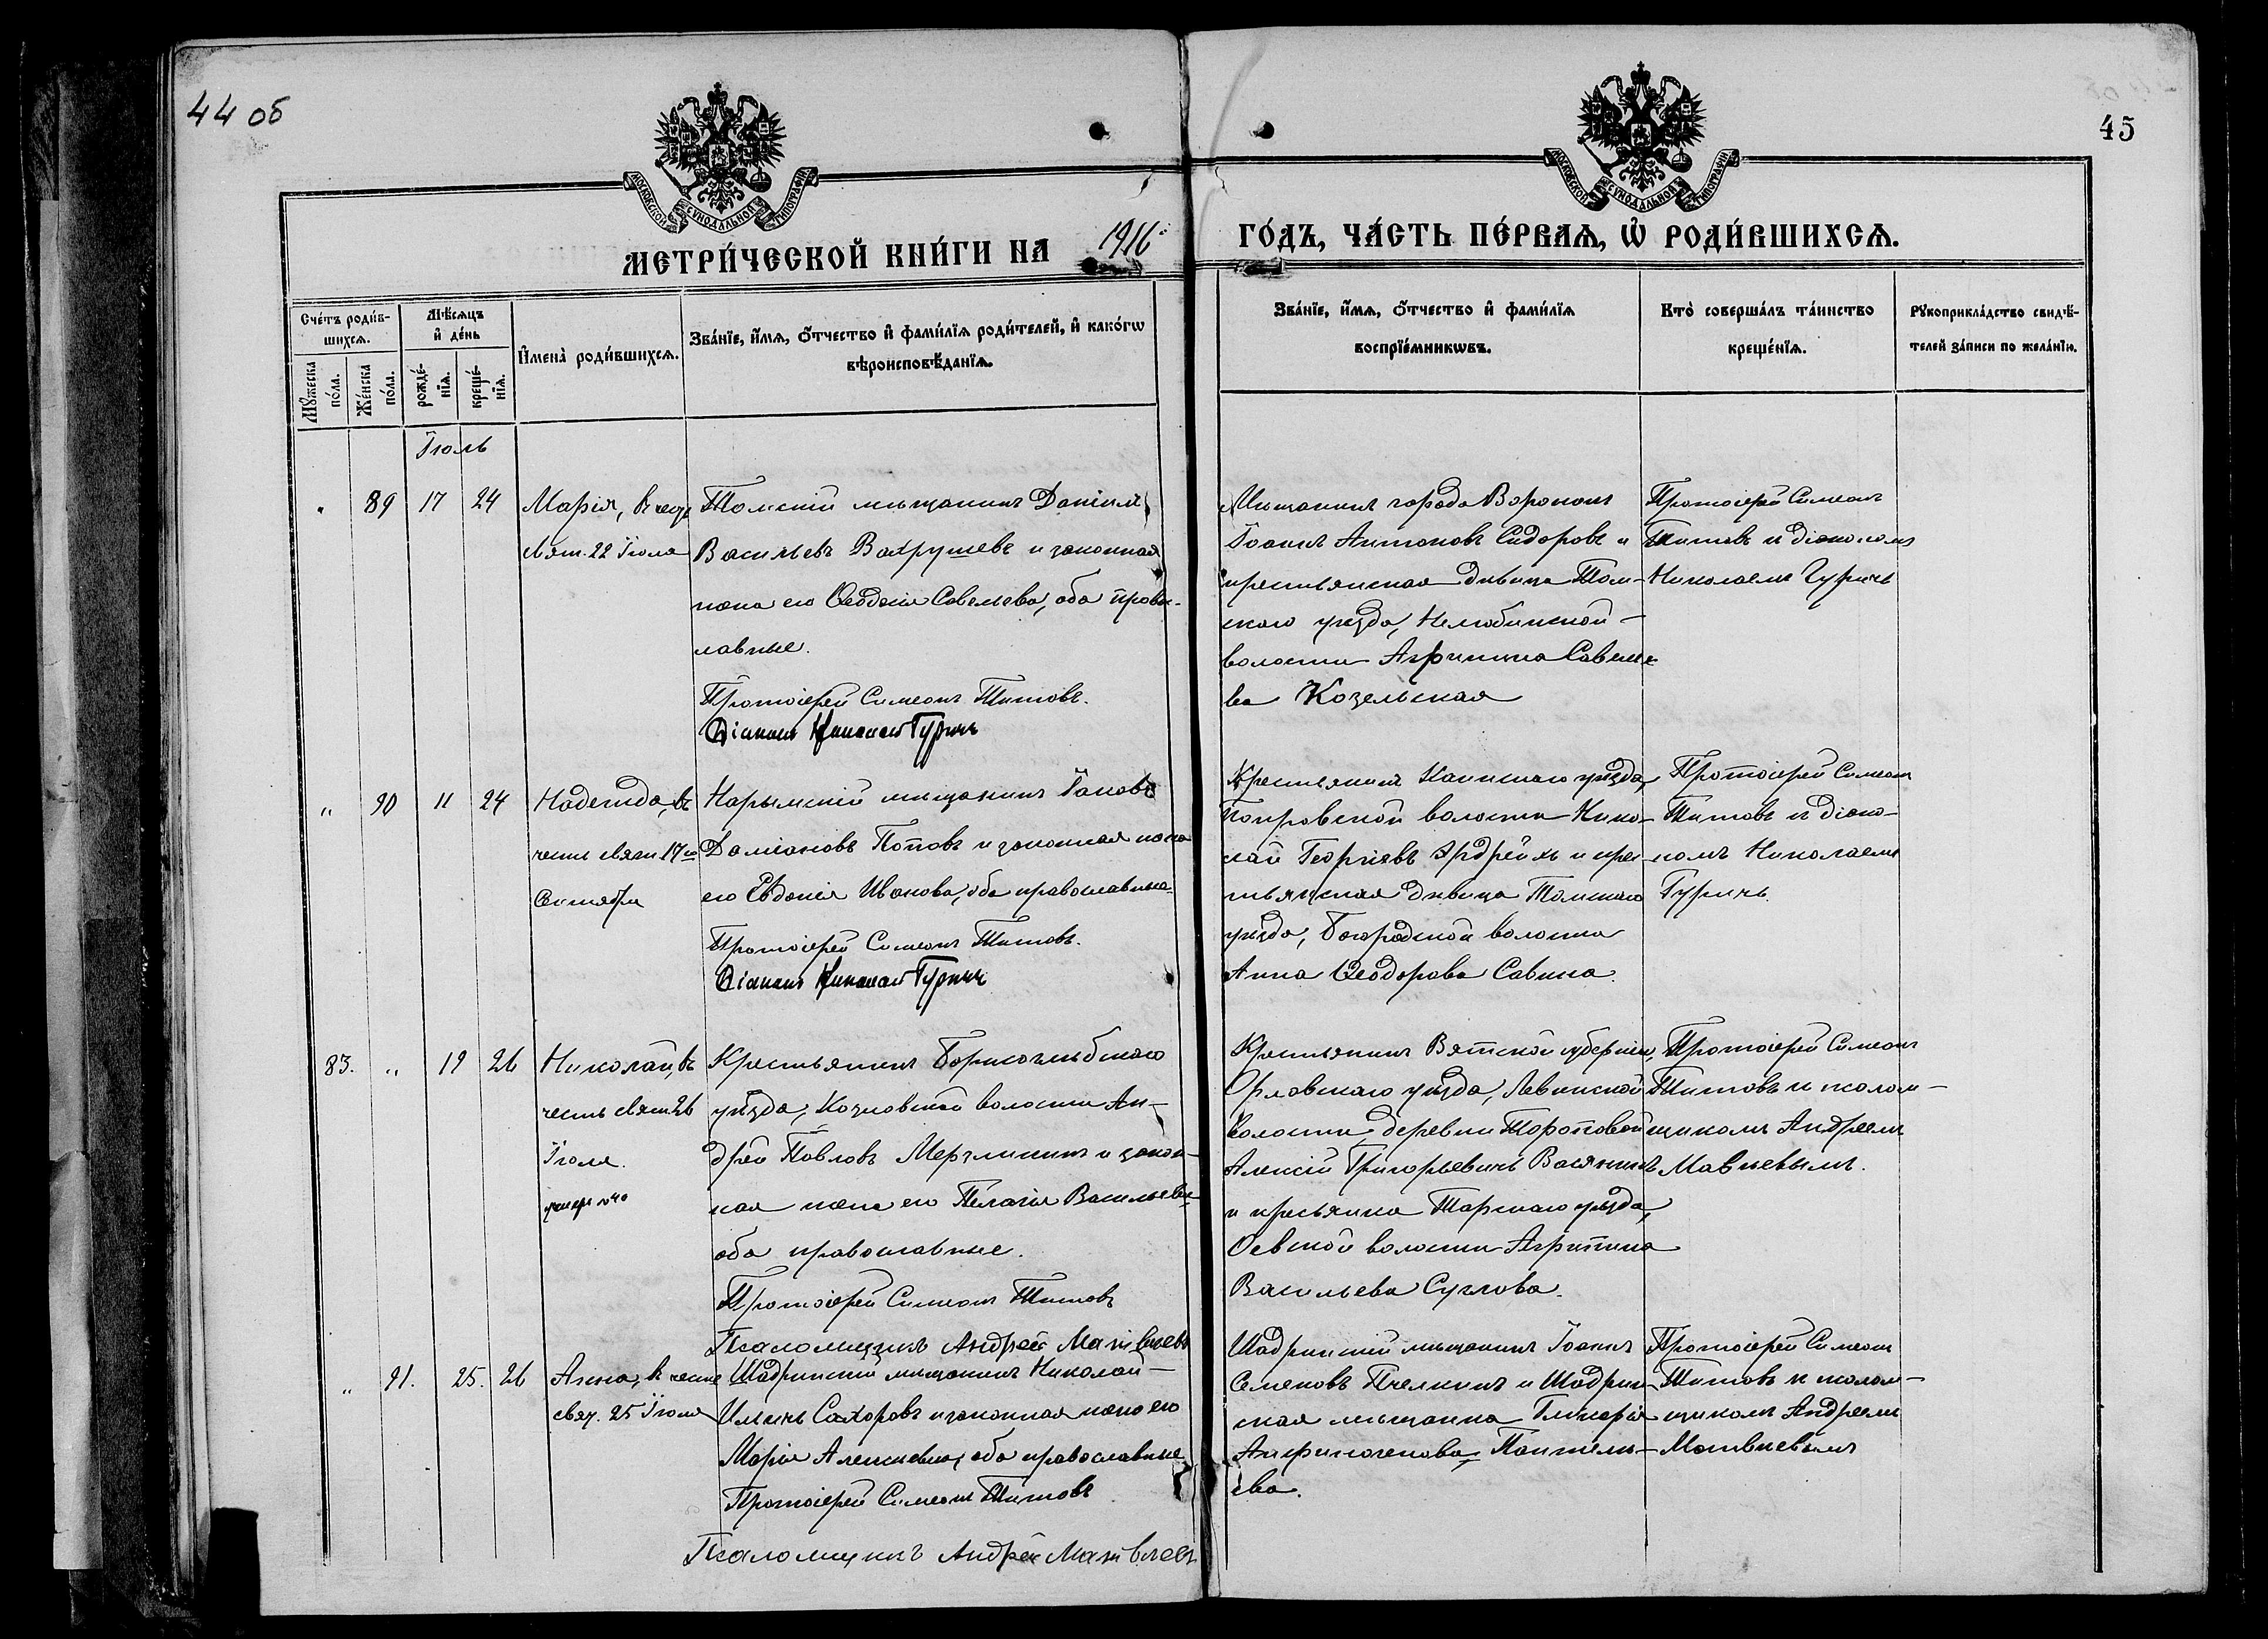 44 об
45
МОСКОВСКОЙ СѴНОДАЛЬНОЙ ТИПОГРАФІИ
МОСКОВСКОЙ СѴНОДАЛЬНОЙ ТИПОГРАФІИ
МЕТРИ́ЧЕСКОЙ КНИ́ГИ НА 1916 ГО́ДЪ, ЧА́СТЬ ПЕ́РВАѦ, Ѡ҆ РОДИ́ВШИХСѦ.
Сче́тъ роди́в-
шихсѧ.
Мꙋ́жеска по́ла.
Же́нска по́ла.
Мѣ́сѧцъ
и҆ де́нь
рожде́-
нїѧ.
креще́-
нїѧ.
И҆мена̀ роди́вшихсѧ.
Зва́нїе, и҆́мѧ, ѻ҆́тчество и҆ фами́лїѧ роди́телей, и҆ како́гѡ
вѣроисповѣ́данїѧ.
Зва́нїе, и҆́мѧ, ѻ҆́тчество и҆ фами́лїѧ
воспрїе́мникѡвъ.
Кто̀ соверша́лъ та́инство
креще́нїѧ.
Рꙋкоприкла́дство свидѣ́-
телей за́писи по жела́нїю.
Іюль
" 89 17 24
Марія, въ честь
свят. 22 Іюля
Томскій мѣщанинъ Даніилъ
Васильевъ Вахрушевъ и законная
жена его Ѳеодосія Савельева, оба право-
славные.
Протоіерей Симеонъ Титовъ.
Діаконъ Николай Гуричъ
Мѣщанинъ города Воронеж
Іоаннъ Антоновъ Сидоровъ и
крестьянская дѣвица Том-
скаго уѣзда, Нелюбинской
волости Агрипина Савелье
ва Козельская
Протоіерей Симеонъ
Титовъ и діакономъ
Николаемъ Гуричъ
" 90 11 24
Надежда, въ
честь свят. 17го
Сентября
Нарымскій мѣщанинъ Іаковъ
Даміановъ Поповъ и законная жена
его Евдокія Иванова, оба православные.
Протоіерей Симеонъ Титовъ.
Діаконъ Николай Гуричъ
Крестьянинъ Каинскаго уѣзда,
Покровской волости Нико-
лай Георгіевъ и крес-
тьянская дѣвица Томскаго
уѣзда, Богородской волости
Анна Ѳеодорова Савина.
Протоіерей Симеонъ
Титовъ и діако-
номъ Николаемъ
Гуричъ.
83. " 19 26
Николай, въ
честь свят. 26
Іюля.
Крестьянинъ Борисоглѣбскаго
уѣзда, Козловской волости Ан-
дрей Павловъ Мерзликинъ и закон-
ная жена его Пелагія Васильева,
оба православные.
Протоіерей Симеонъ Титовъ
Псаломщикъ Андрей Матвѣевъ
Крестьянинъ Вятской губерніи,
Орловскаго уѣзда, Левинской
волости, деревни Тороповой
Алексій Григорьевичъ Васянинъ
и кресьянка Тарскаго уѣзда,
волости Агрипина
Васильева Суслова.
Протоіерей Симеонъ
Титовъ и псалом-
щикомъ Андреемъ
Матвѣевымъ.
" 91. 25. 26
Анна, въ честь
свят. 25 Іюля
Шадринскій мѣщанинъ Николай
Ильинъ Сахаровъ и законная жена его
Марія Алексѣевна, оба православные.
Протоіерей Симеонъ Титовъ
Псаломщикъ Андрей Матвѣевъ
Шадринскій мѣщанинъ Іоаннъ
Семеновъ Пчелкинъ и Шадрин-
ская мѣщанка Гликерія
Анфиногенова Пантелѣ-
ева.
Протоіерей Симеонъ
Титовъ и псалом-
щикомъ Андреемъ
Матвѣевымъ